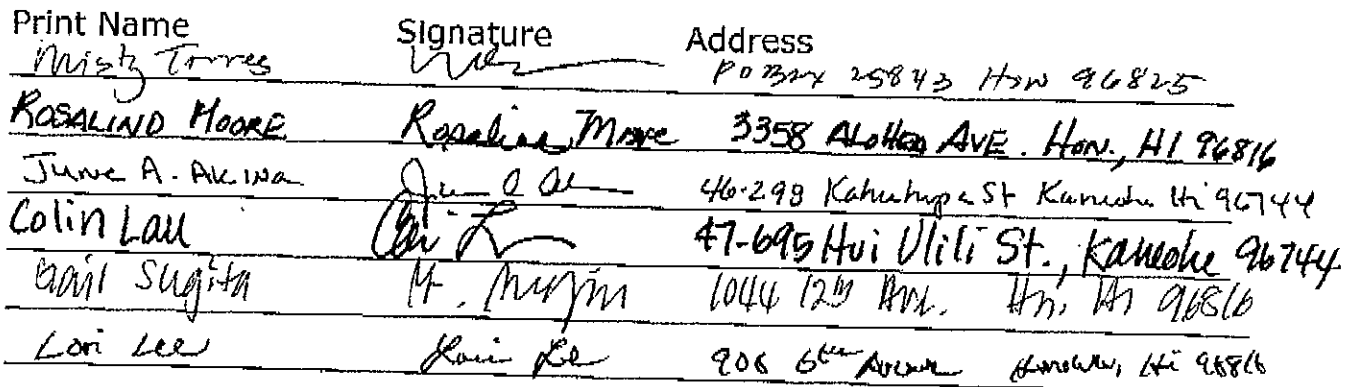 Print Name Signature Address
Misty Torres PO Box 25843 Hon 96825
ROSALIND MOORE Rosalind Moore 3358 AVE. HON., HI 96816
June A. Akina 46-298 Kahuhipa St Kaneohe Hi 96744
Colin Lau 47-695 Hui Ulili St., Kaneohe 96744
Gail Sugita 1044 12th Ave. Hn. Hi 96816
Lori Lee Lori Lee 906 6th Avenue Honolulu, Hi 96816